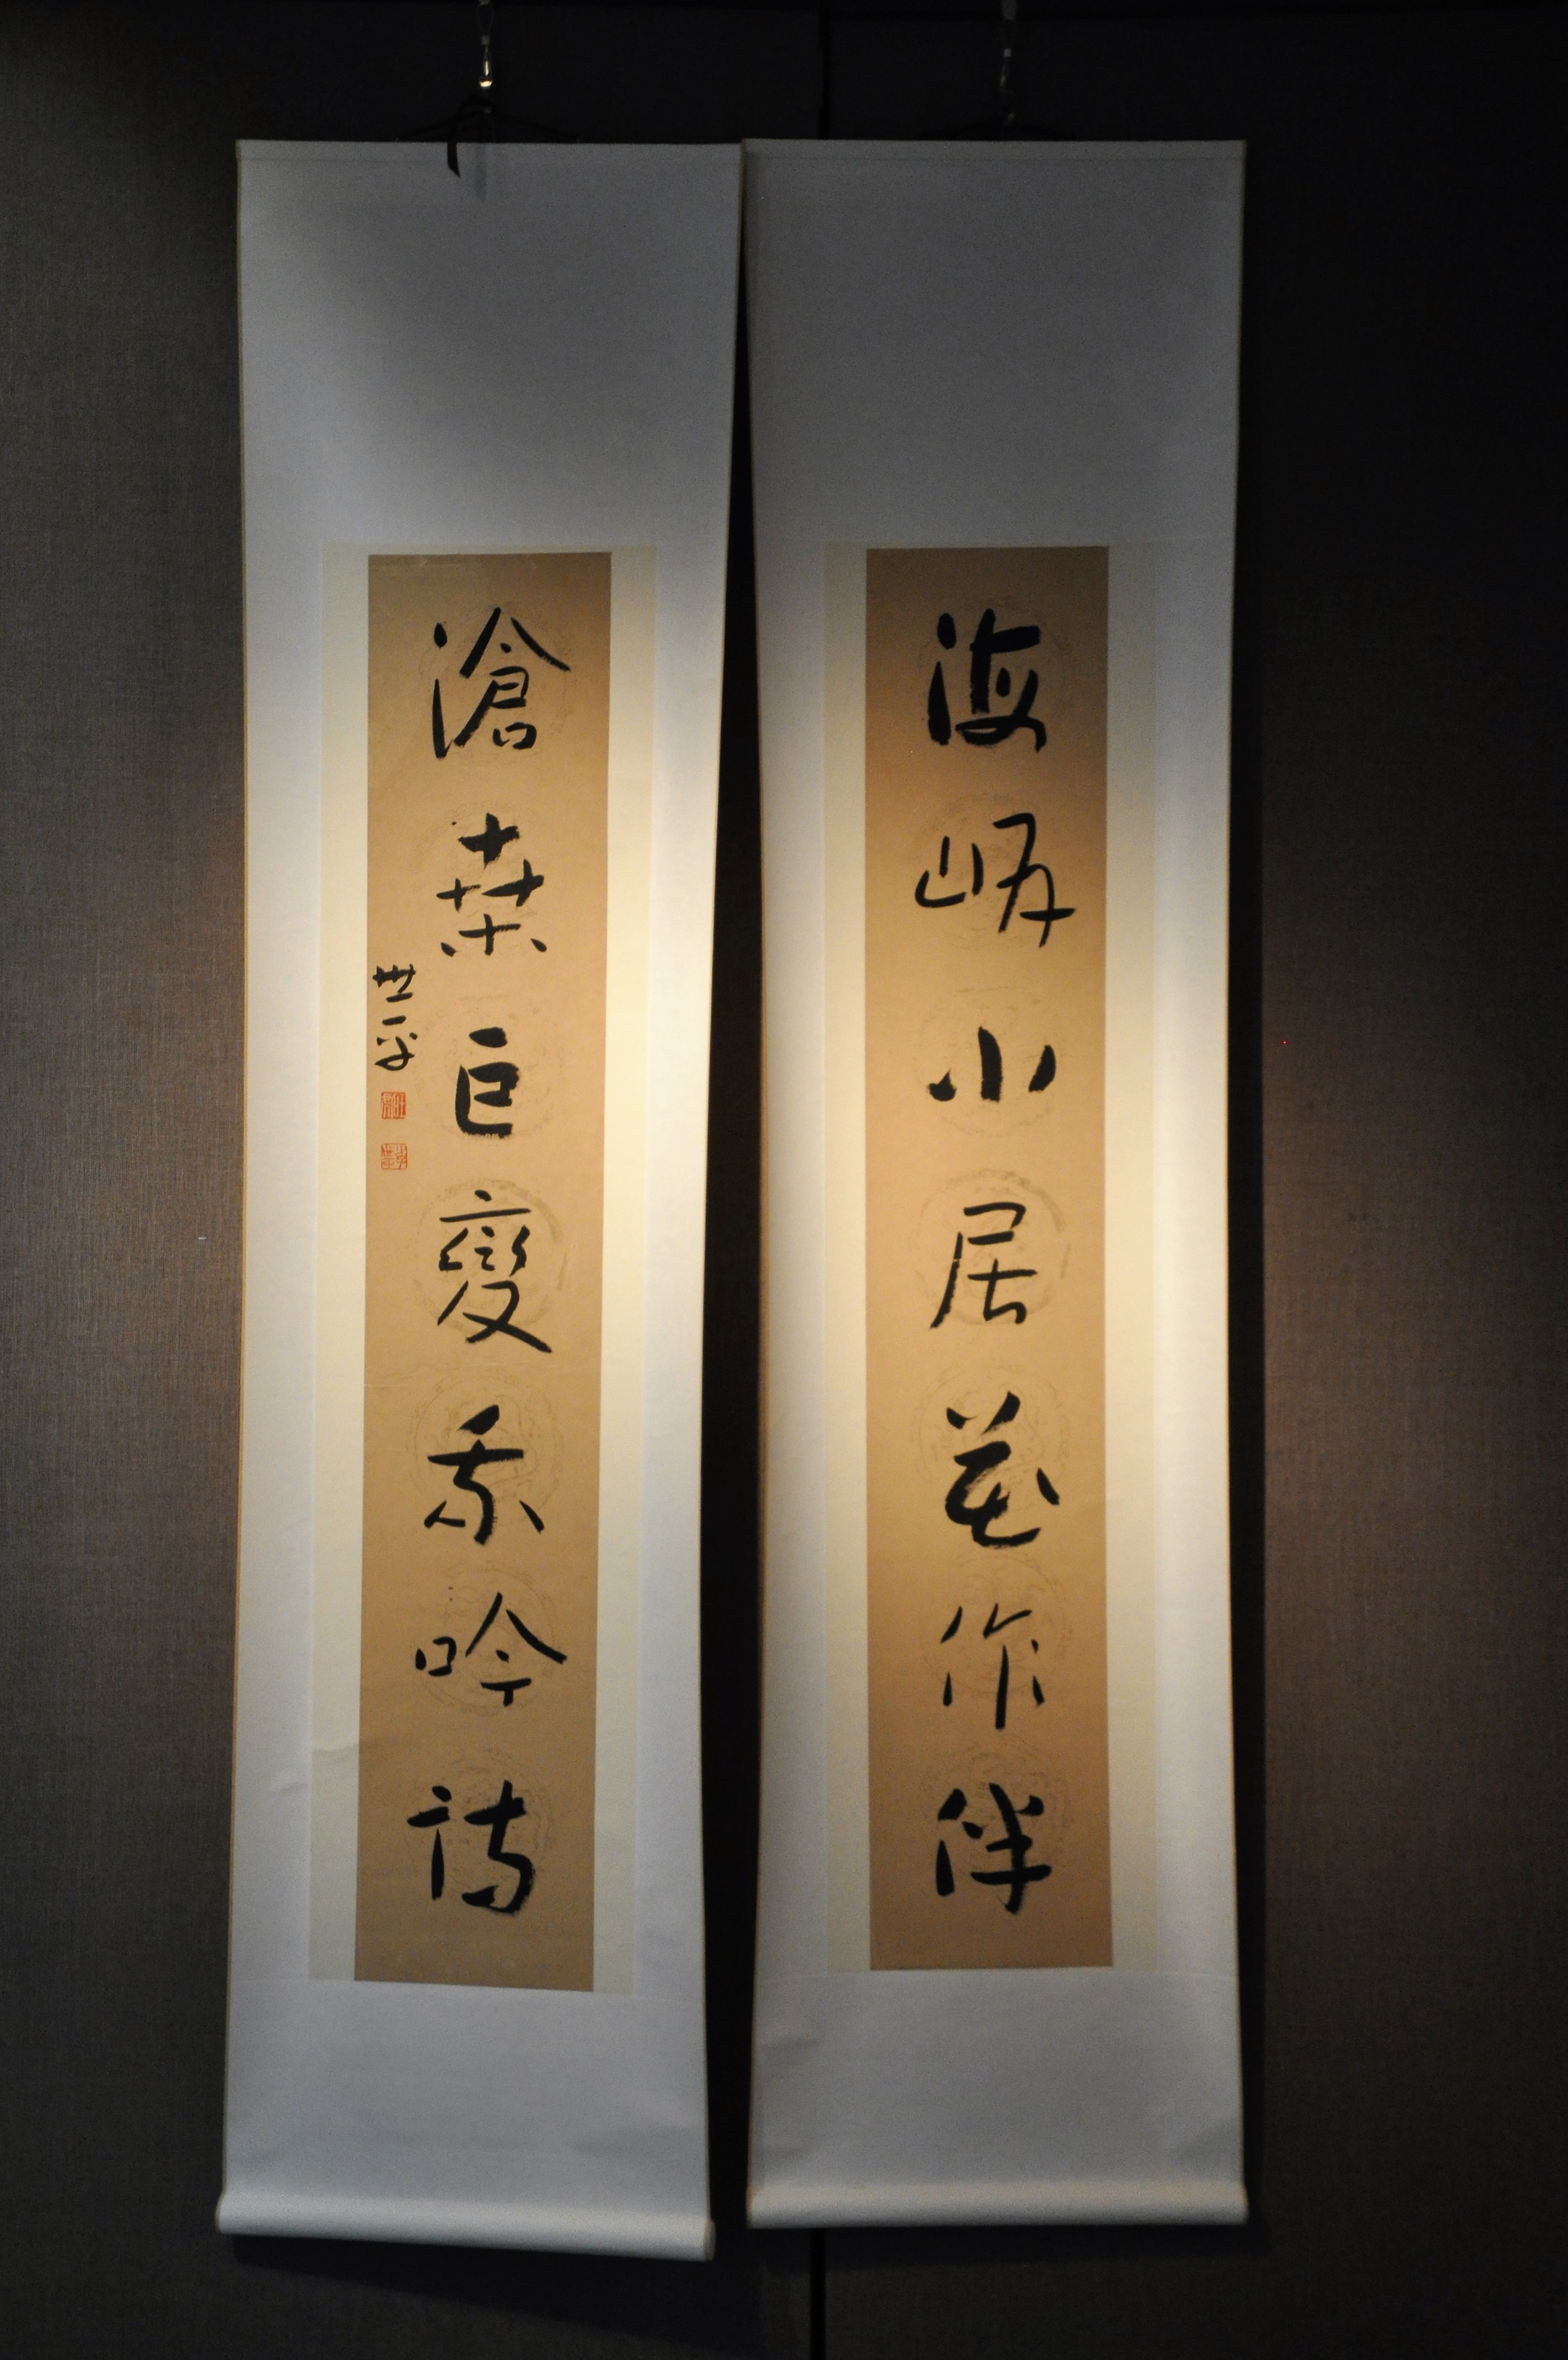 海㟁小居花作伴
滄桑巨變我吟詩
世平